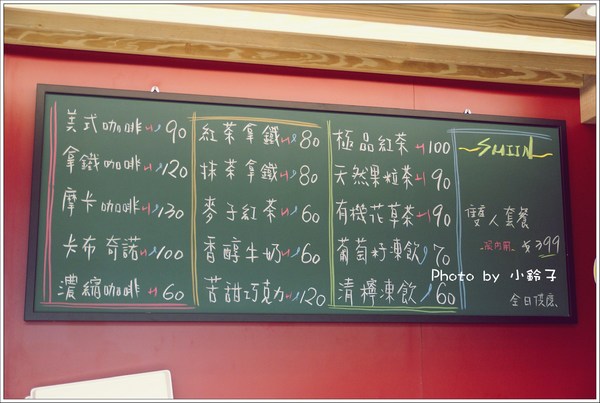 美式咖啡 90
拿鐵咖啡 120
摩卡咖啡 130
卡布奇諾 100
濃縮咖啡 60
紅茶拿鐵 80
抹茶拿鐵 80
麥子紅茶 60
香醇牛奶 60
苦甜巧克力 120
極品紅茶 100
天然果粒茶 90
有機花草茶 90
葡萄籽凍飲 70
清檸凍飲 60
SHIIN
雙人套餐
$399
全日供應
Photo by 小鈴子